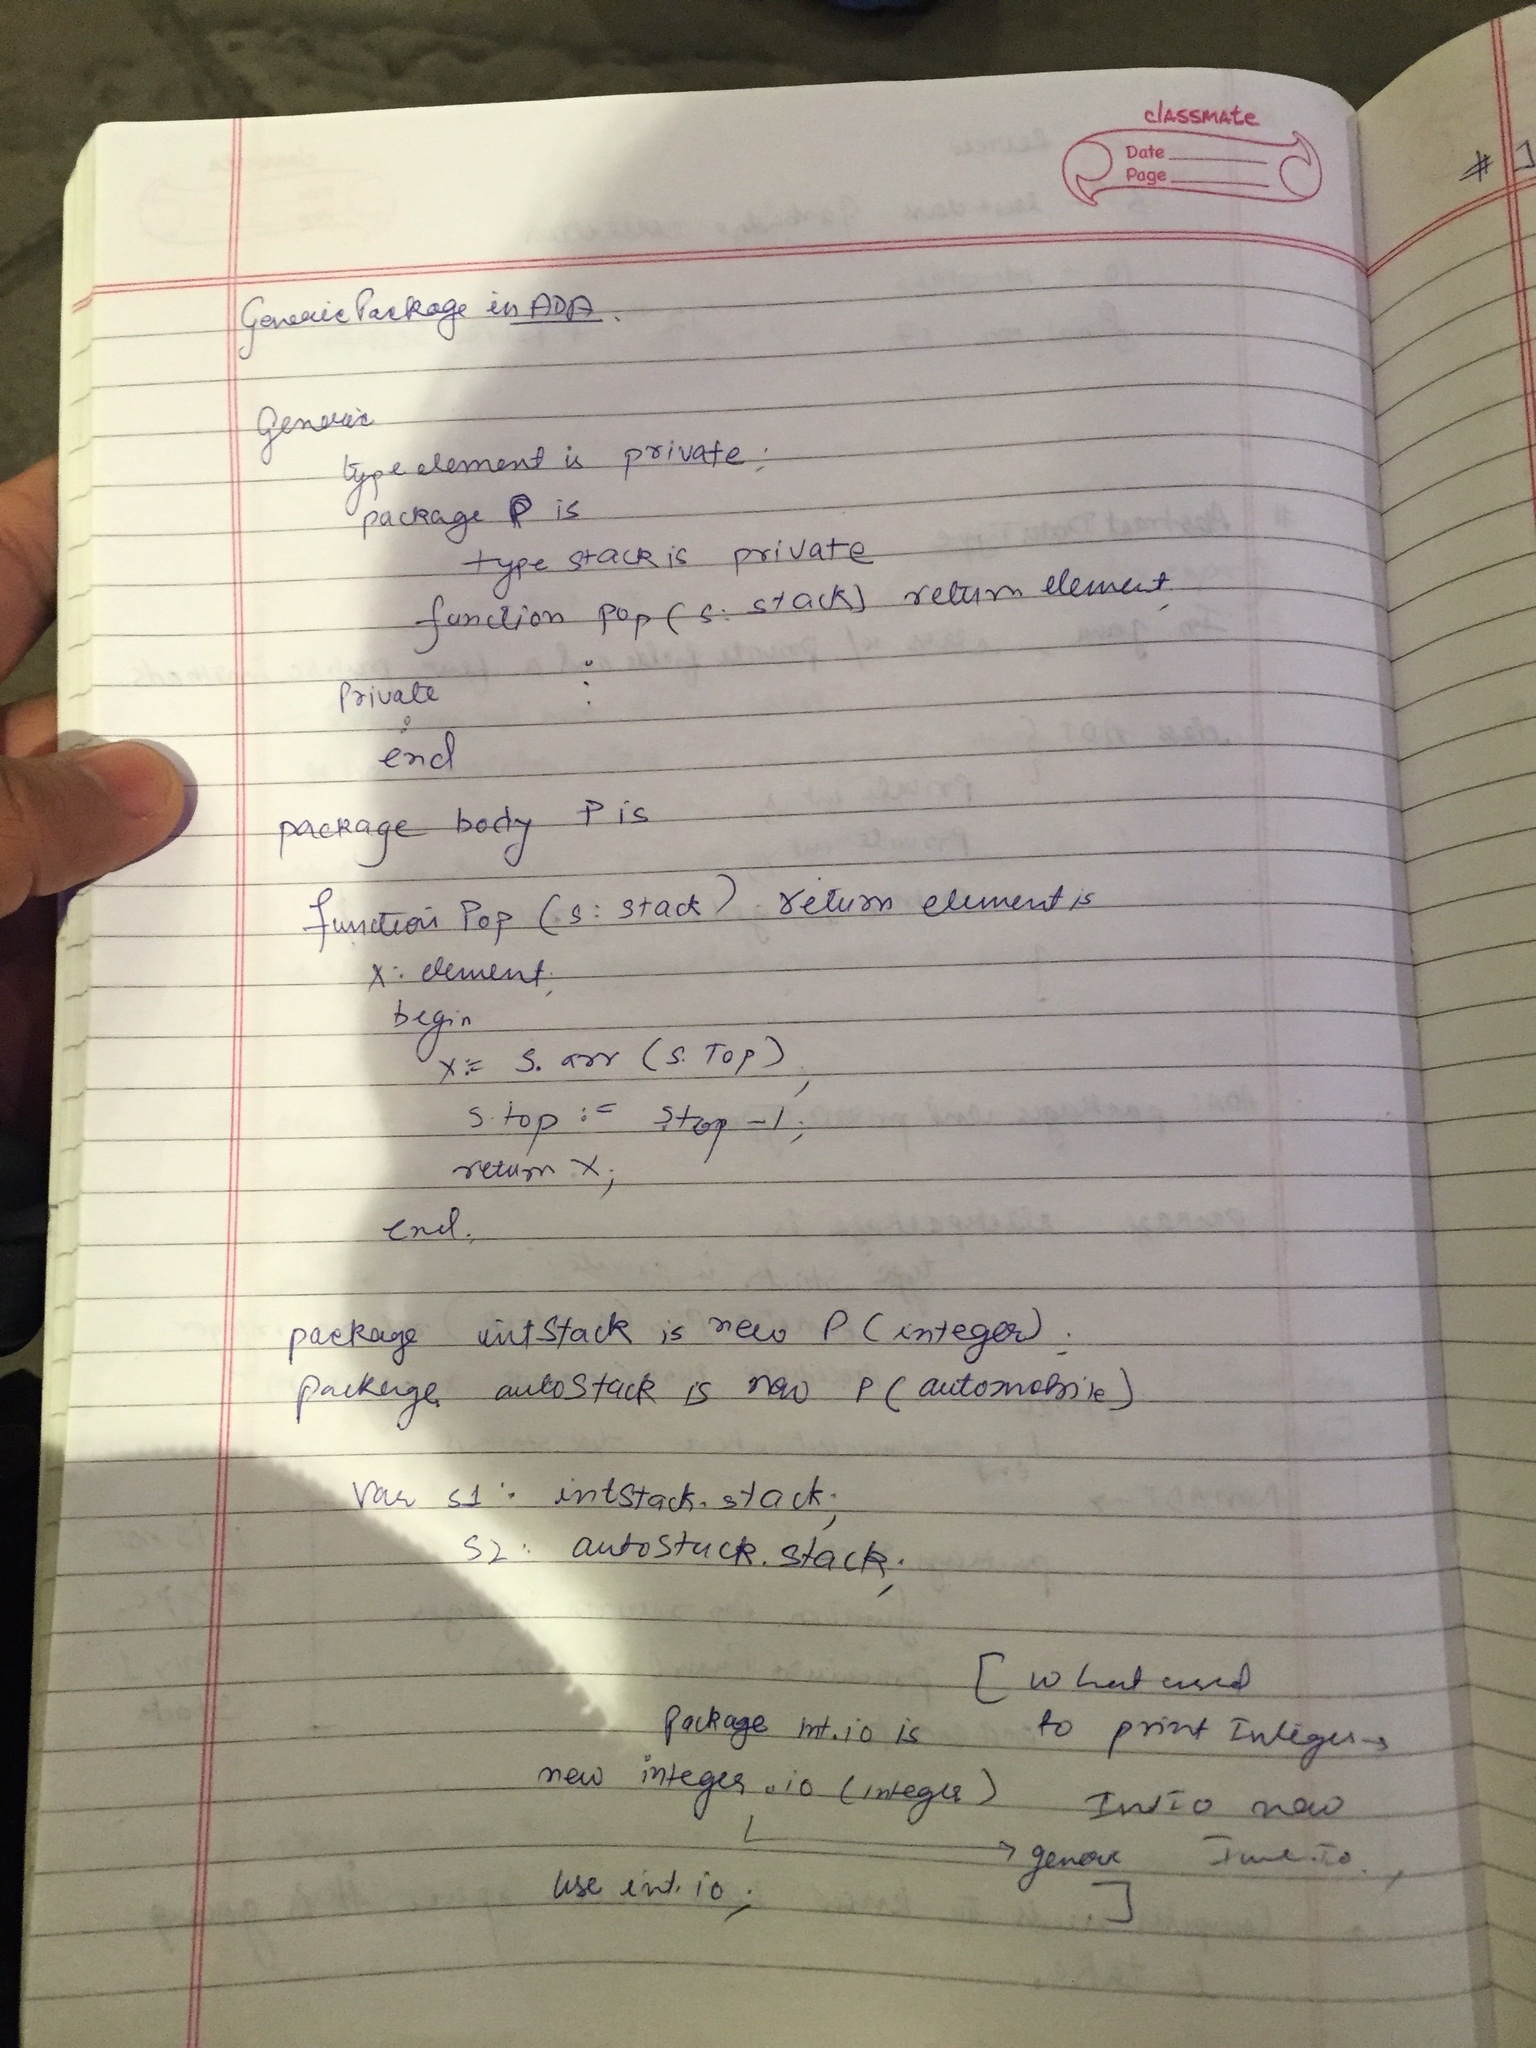 classmate
Date
Page
#
Generic Package in ADA.
Generic
type element is private;
package P is
type stack is private
function pop (s: stack) return element;
:
Private
:
:
end
package body P is
function Pop (s: stack) return element is
x: element;
begin
x:= s. arr (s. Top);
s.top := s.top -1;
return x;
end.
package intStack is new P (integer);
package autoStack is new P (automobile)
var s1: intStack.stack;
s2: autoStack.stack;
[ What used
package int.io is to print Integer →
new integer.io (integer) IntIO new
→
use int.io;
]